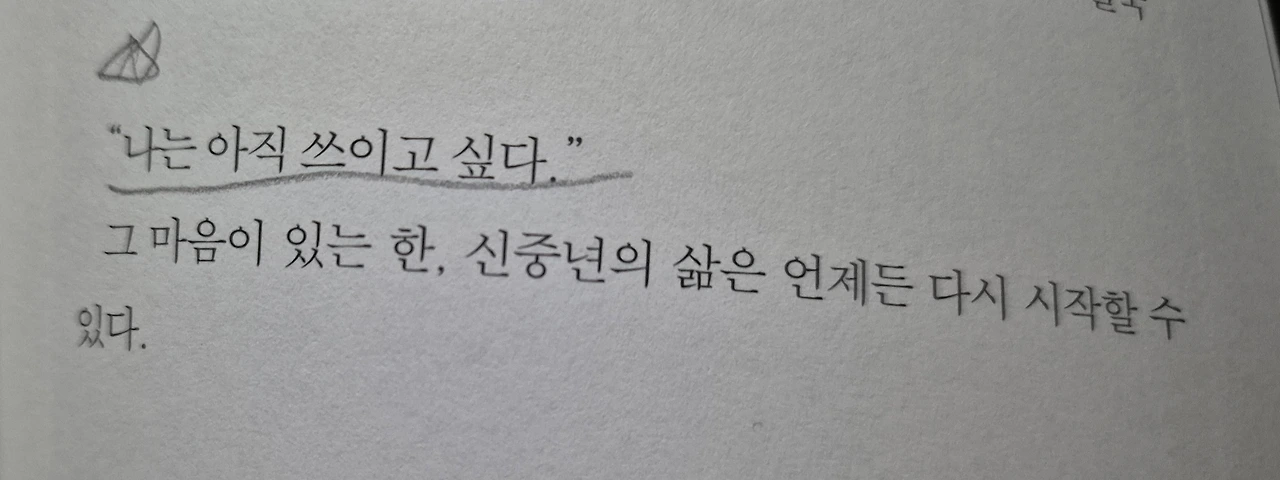 “나는 아직 쓰이고 싶다.”
그 마음이 있는 한, 신중년의 삶은 언제든 다시 시작할 수
있다.